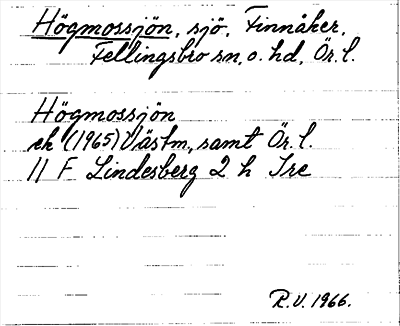 Högmossjön, sjö, Finnåker,
Fellingsbro sn, o. hd, Ör. l.
Högmossjön
ek (1965) Västm, samt Ör. l.
11 F Lindesberg 2 h Tre
R.V. 1966.